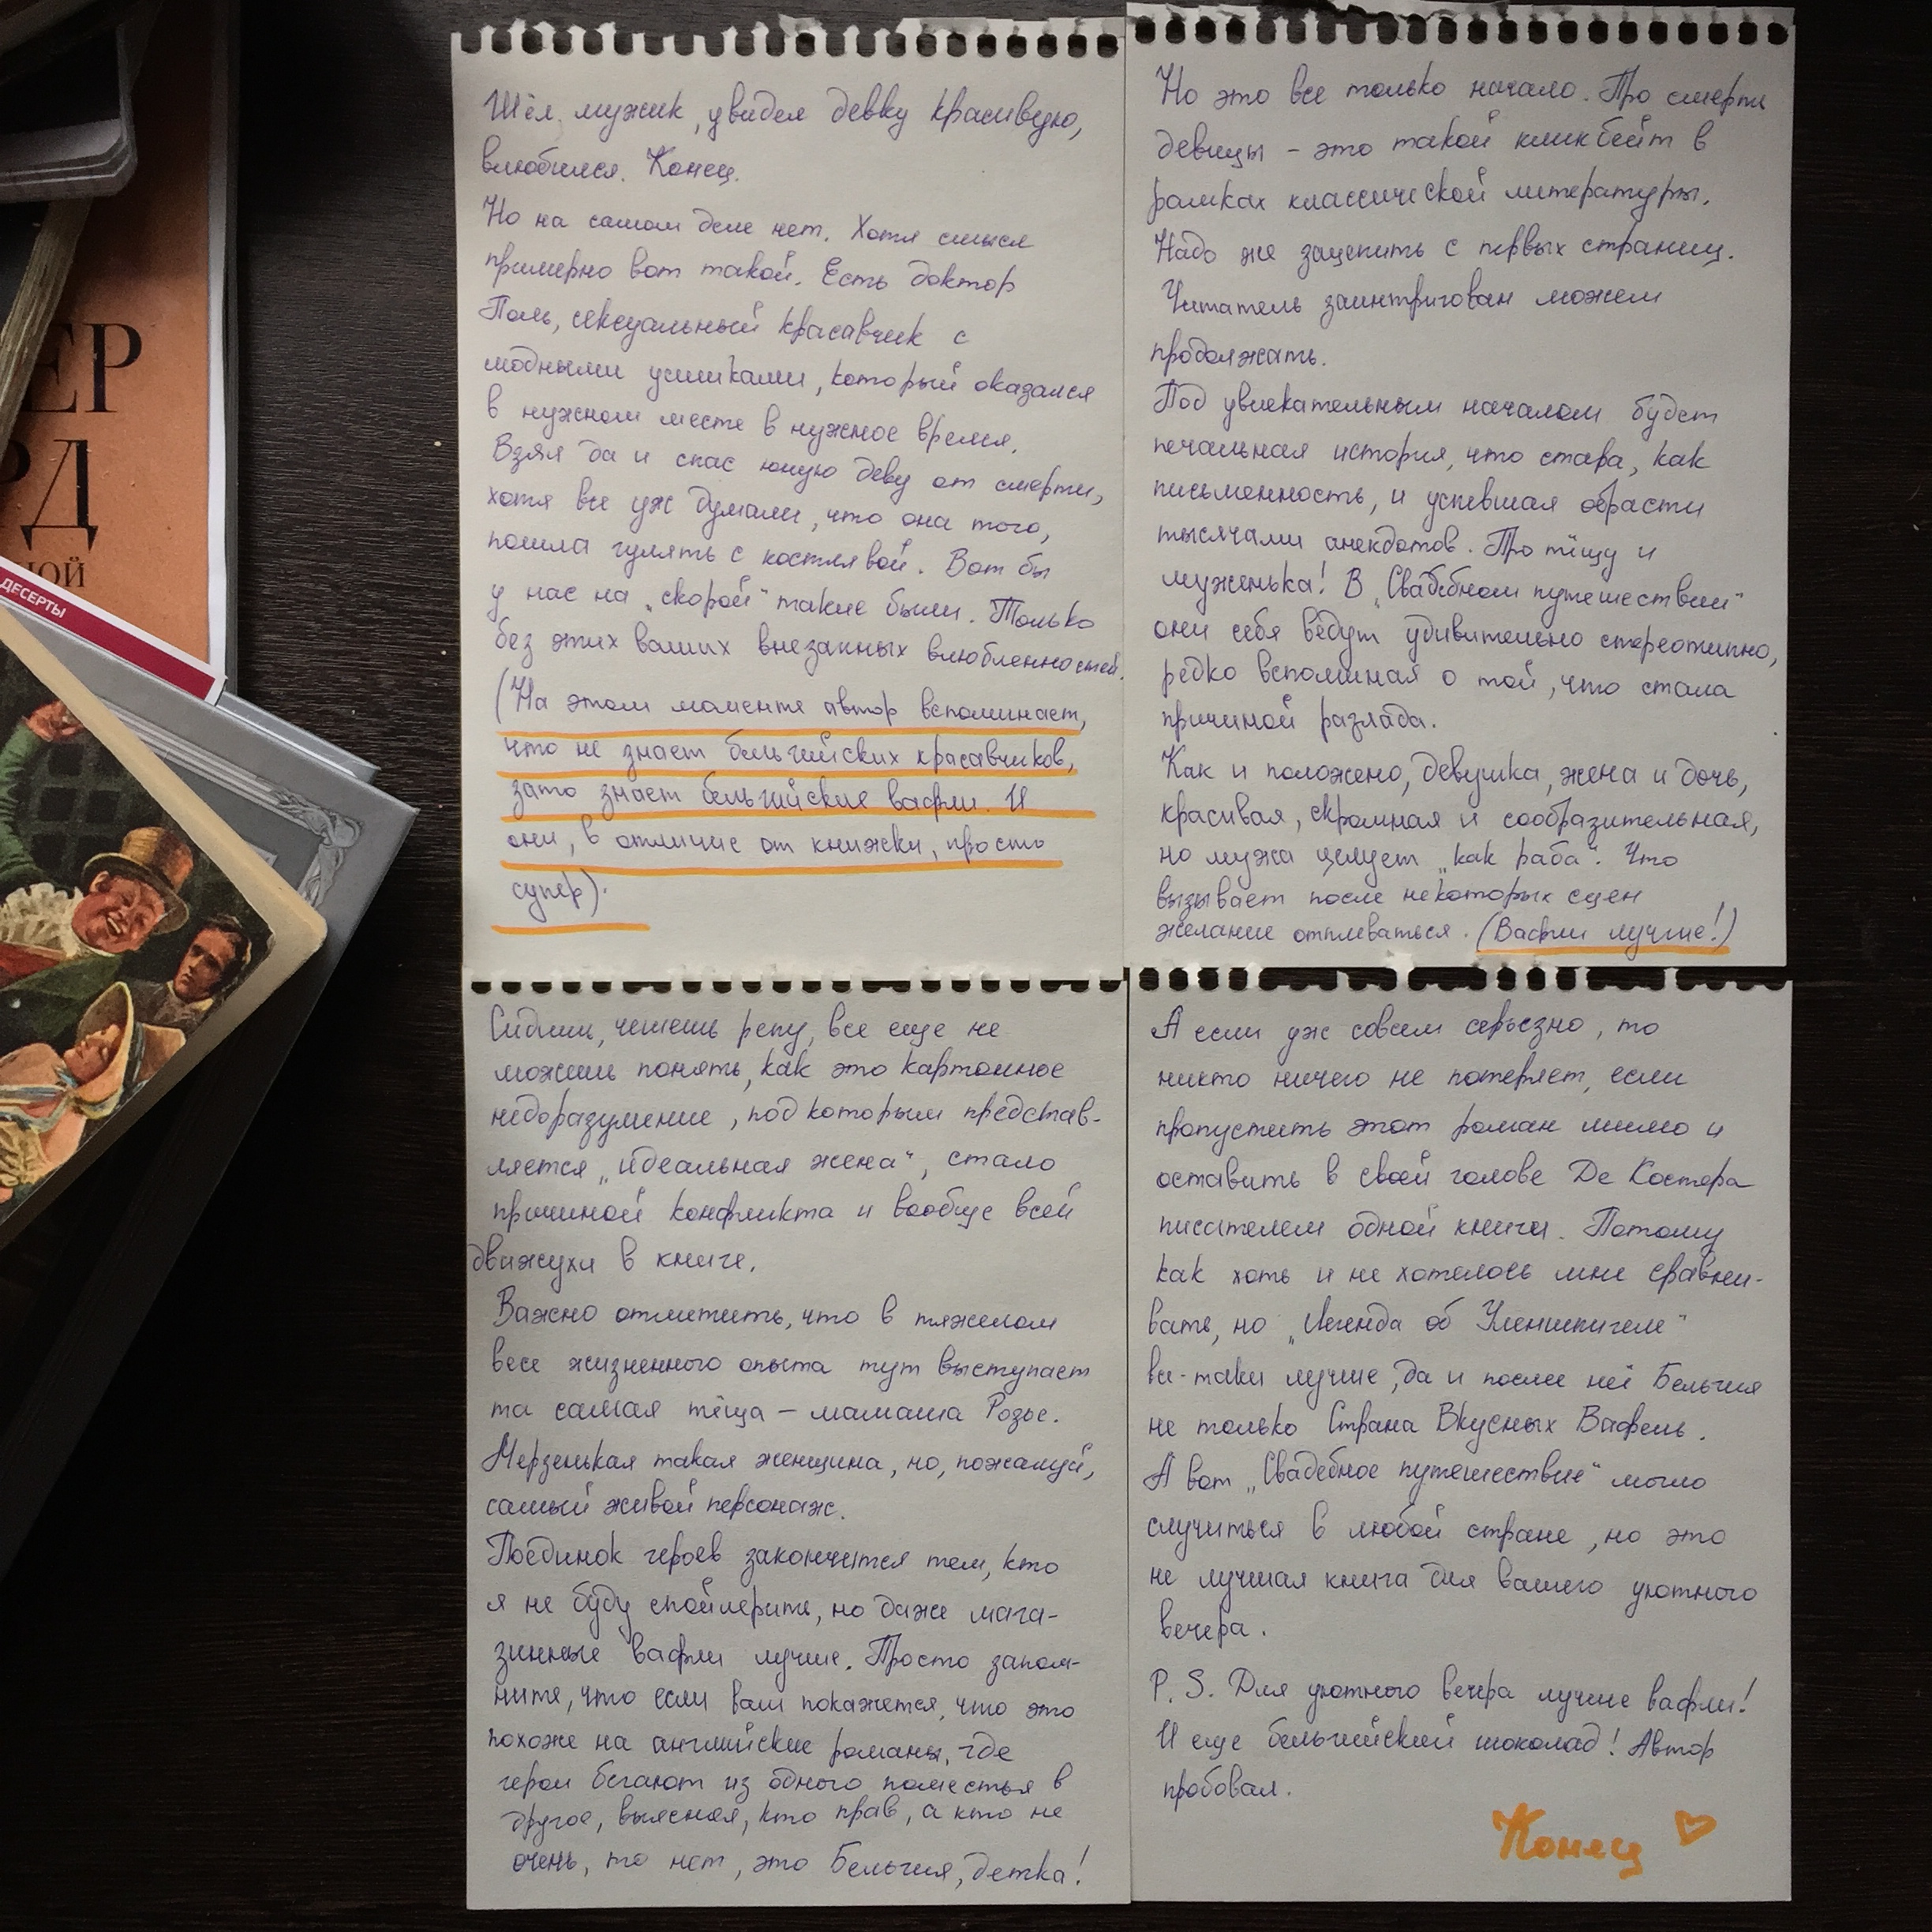 ЕР
РД
НОЙ
ДЕСЕРТЫ
Шёл мужик, увидел девку красивую,
влюбился. Конец.
Но на самом деле нет. Хотя смысл
примерно вот такой. Есть доктор
Поль, сексуальный красавчик с
модными усиками, который оказался
в нужном месте в нужное время.
Взял да и спас юную деву от смерти,
хотя все уж думали, что она того,
пошла гулять с костлявой. Вот бы
у нас на „скорой" такие были. Только
без этих ваших внезапных влюбленностей.
(На этом моменте автор вспоминает,
что не знает бельгийских красавчиков,
зато знает бельгийские вафли. И
они, в отличие от книжки, просто
супер).
Но это все только начало. Про смерть
девицы – это такой кликбейт в
рамках классической литературы.
Надо же зацепить с первых страниц.
Читатель заинтригован можем
продолжать.
Под увлекательным началом будет
печальная история, что стара, как
письменность, и успевшая обрасти
тысячами анекдотов. Про тёщу и
муженька! В „Свадебном путешествии"
они себя ведут удивительно стереотипно,
редко вспоминая о той, что стала
причиной разлада.
Как и положено, девушка, жена и дочь,
красивая, скромная и сообразительная,
но мужа целует „как раба". Что
вызывает после некоторых сцен
желание отплеваться. (Вафли лучше!)
Сидишь, чешешь репу, все еще не
можешь понять, как это картонное
недоразумение, под которым представ-
ляется „идеальная жена", стало
причиной конфликта и вообще всей
движухи в книге.
Важно отметить, что в тяжелом
весе жизненного опыта тут выступает
та самая тёща – мамаша Розье.
Мерзенькая такая женщина, но, пожалуй,
самый живой персонаж.
Поединок героев закончится тем, кто
я не буду спойлерить, но даже мага-
зинные вафли лучше. Просто запом-
ните, что если вам покажется, что это
похоже на английские романы, где
герои бегают из одного поместья в
другое, выясняя, кто прав, а кто не
очень, то нет, это Бельгия, детка!
А если уж совсем серьезно, то
никто ничего не потеряет, если
пропустить этот роман мимо и
оставить в своей голове Де Костера
писателем одной книги. Потому
как хоть и не хотелось мне сравни-
вать, но „Легенда об Уленшпигеле"
все-таки лучше, да и после неё Бельгия
не только Страна Вкусных Вафель.
А вот „Свадебное путешествие" могло
случиться в любой стране, но это
не лучшая книга для вашего уютного
вечера.
P. S. Для уютного вечера лучше вафли!
И еще бельгийский шоколад! Автор
пробовал.
Конец ♡